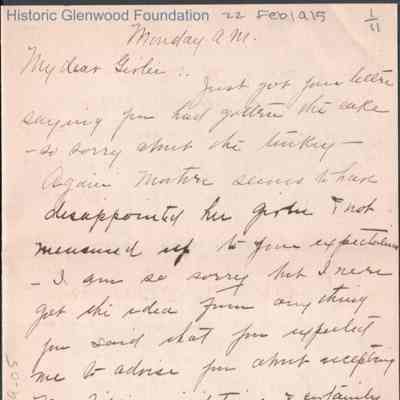 Historic Glenwood Foundation
22 Feb 1915
1/11
Monday a.m.
My dear Girlie :.
Just got your letter
saying you had gotten the cake
- so sorry about the turkey -
Again Mother seems to have
disappointed her girlie & not
measured up to your expectations
- I am so sorry but I never
got the idea from anything
you said that you expected
me to advise you about accepting
& certainly